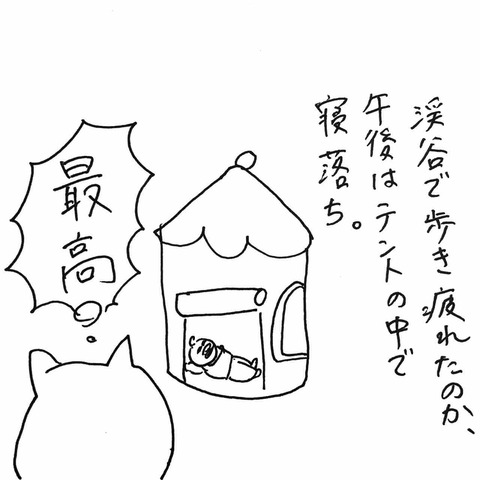 渓谷で歩き疲れたのか、
午後はテントの中で
寝落ち。
最高